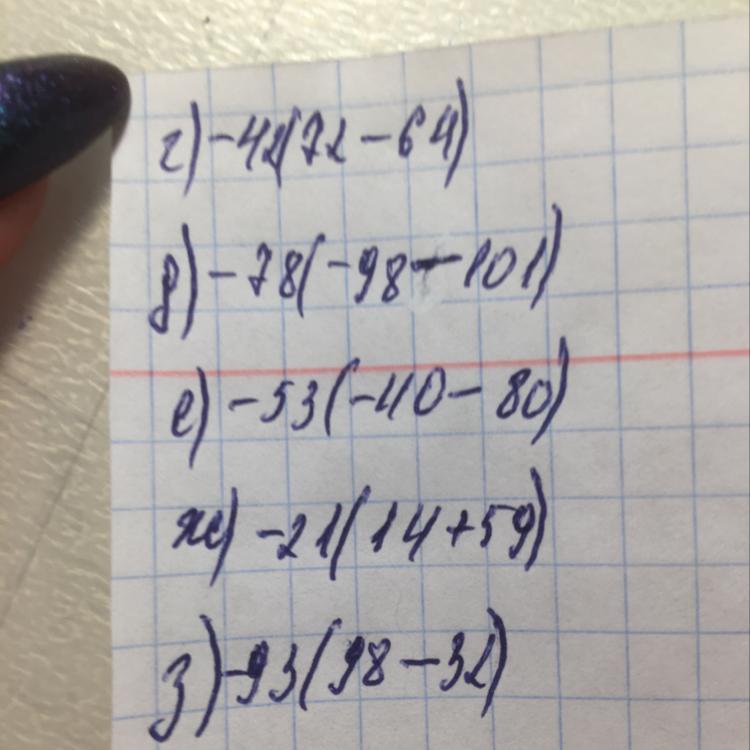 г) -42(72-64)
д) -78(-98-101)
е) -53(-40-80)
ж) -21(14+59)
з) -93(98-32)